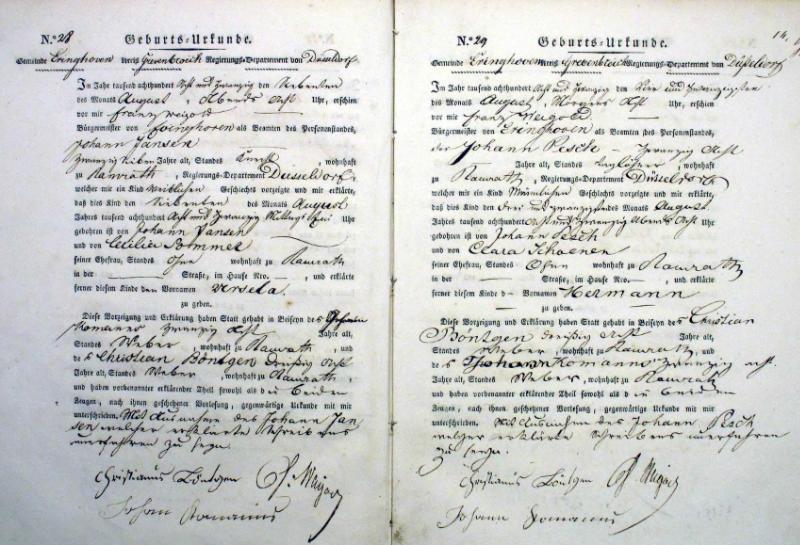 N.º 28 Geburts-Urkunde.
Gemeinde Evinghoven Kreis Grevenbroich Regierungs-Departement von Düsseldorf
Im Jahr tausend achthundert Acht und Zwanzig den Siebenten
des Monats August, Abends Acht Uhr, erschien
vor mir Franz Weigold
Bürgermeister von Evinghoven als Beamten des Personenstandes,
Johann Jansen
Zwanzig Sieben Jahre alt, Standes , wohnhaft
zu Ramrath, Regierungs-Departement Düsseldorf
welcher mir ein Kind Weiblichen Geschlechts vorzeigte und mir erklärte,
daß dies Kind den Siebenten des Monats August
Jahres tausend achthundert Acht und Zwanzig Mittags Uhr
gebohren ist von Johann Jansen
und von Cecilia Bommes
seiner Ehefrau, Standes Ohne wohnhaft zu Ramrath
in der Straße, im Hause Nro. — , und erklärte
ferner diesem Kind den Vornamen Ursela
zu geben.
Diese Vorzeigung und Erklärung haben Statt gehabt in Beiseyn des Johann
Romanns Zwanzig Acht Jahre alt,
Standes Weber, wohnhaft zu Ramrath, und
des Christian Böntgen dreißig Acht
Jahre alt, Standes Weber, wohnhaft zu Ramrath,
und haben vorbenannter erklärender Theil sowohl als die beiden
Zeugen, nach ihnen geschehener Vorlesung, gegenwärtige Urkunde mit mir
unterschrieben. Mit Ausnahme des Johann Jan-
sen welcher erklärte Schreibens
unerfahren zu seyn.
Christianus Böntgen
Johann Romanns
N.º 29 Geburts-Urkunde. 14.
Gemeinde Evinghoven Kreis Grevenbroich Regierungs-Departement von Düsseldorf
Im Jahr tausend achthundert Acht und Zwanzig den und Zwanzigsten
des Monats August, Morgens Acht Uhr, erschien
vor mir Franz Weigold
Bürgermeister von Evinghoven als Beamten des Personenstandes,
der Johann Pesch — Zwanzig Acht
Jahre alt, Standes Taglöhner, wohnhaft
zu Ramrath, Regierungs-Departement Düsseldorf
welcher mir ein Kind Männlichen Geschlechts vorzeigte und mir erklärte,
daß dies Kind den Drei und zwanzigsten des Monats August
Jahres tausend achthundert Acht und Zwanzig Abends Acht Uhr
gebohren ist von Johann Pesch
und von Clara Schaenen
seiner Ehefrau, Standes Ohne wohnhaft zu Ramrath
in der Straße, im Hause Nro. — , und erklärte
ferner diesem Kind Vornamen Hermann
zu geben.
Diese Vorzeigung und Erklärung haben Statt gehabt in Beiseyn des Christian
Böntgen dreißig Acht Jahre alt,
Standes Weber, wohnhaft zu Ramrath, und
des Johann Romanns Zwanzig acht
Jahre alt, Standes Weber, wohnhaft zu Ramrath
und haben vorbenannter erklärender Theil sowohl als die beiden
Zeugen, nach ihnen geschehener Vorlesung, gegenwärtige Urkunde mit mir
unterschrieben. Mit Ausnahme des Johann Pesch
welcher erklärte Schreibens unerfahren
zu seyn.
Christianus Böntgen
Johann Romanns